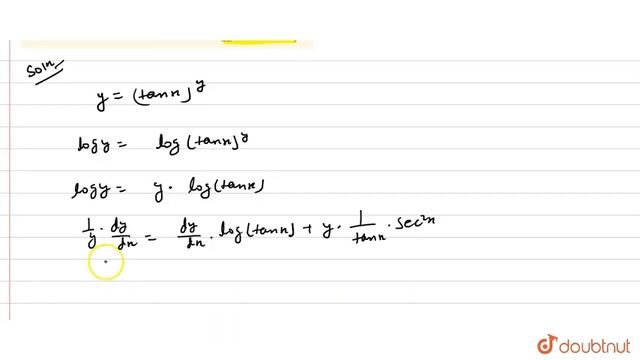 Soln.
y = (tanx)^y
log y = log (tanx)^y
log y = y · log (tanx)
1/y · dy/dx = dy/dx · log (tanx) + y · 1/tanx · sec²x
doubtnut